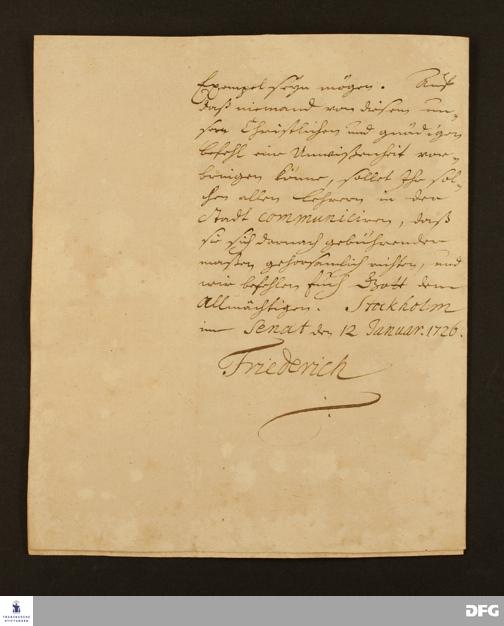 Exempel seyn mögen. Auf
daß niemand von diesem un-
sern Christlichen und gnädigen
befehl eine Unwißenheit vor-
bringen könne, sollet Ihr sol-
chen allen Lehrern in der
Stadt communiciren, daß
sie sich darnach gebührender
maßen gehorsamlich richten, und
wir befehlen Euch Gott dem
Allmächtigen. Stockholm
im Senat den 12 Januar. 1726.
Friederich
FRANCKESCHE
STIFTUNGEN
DFG